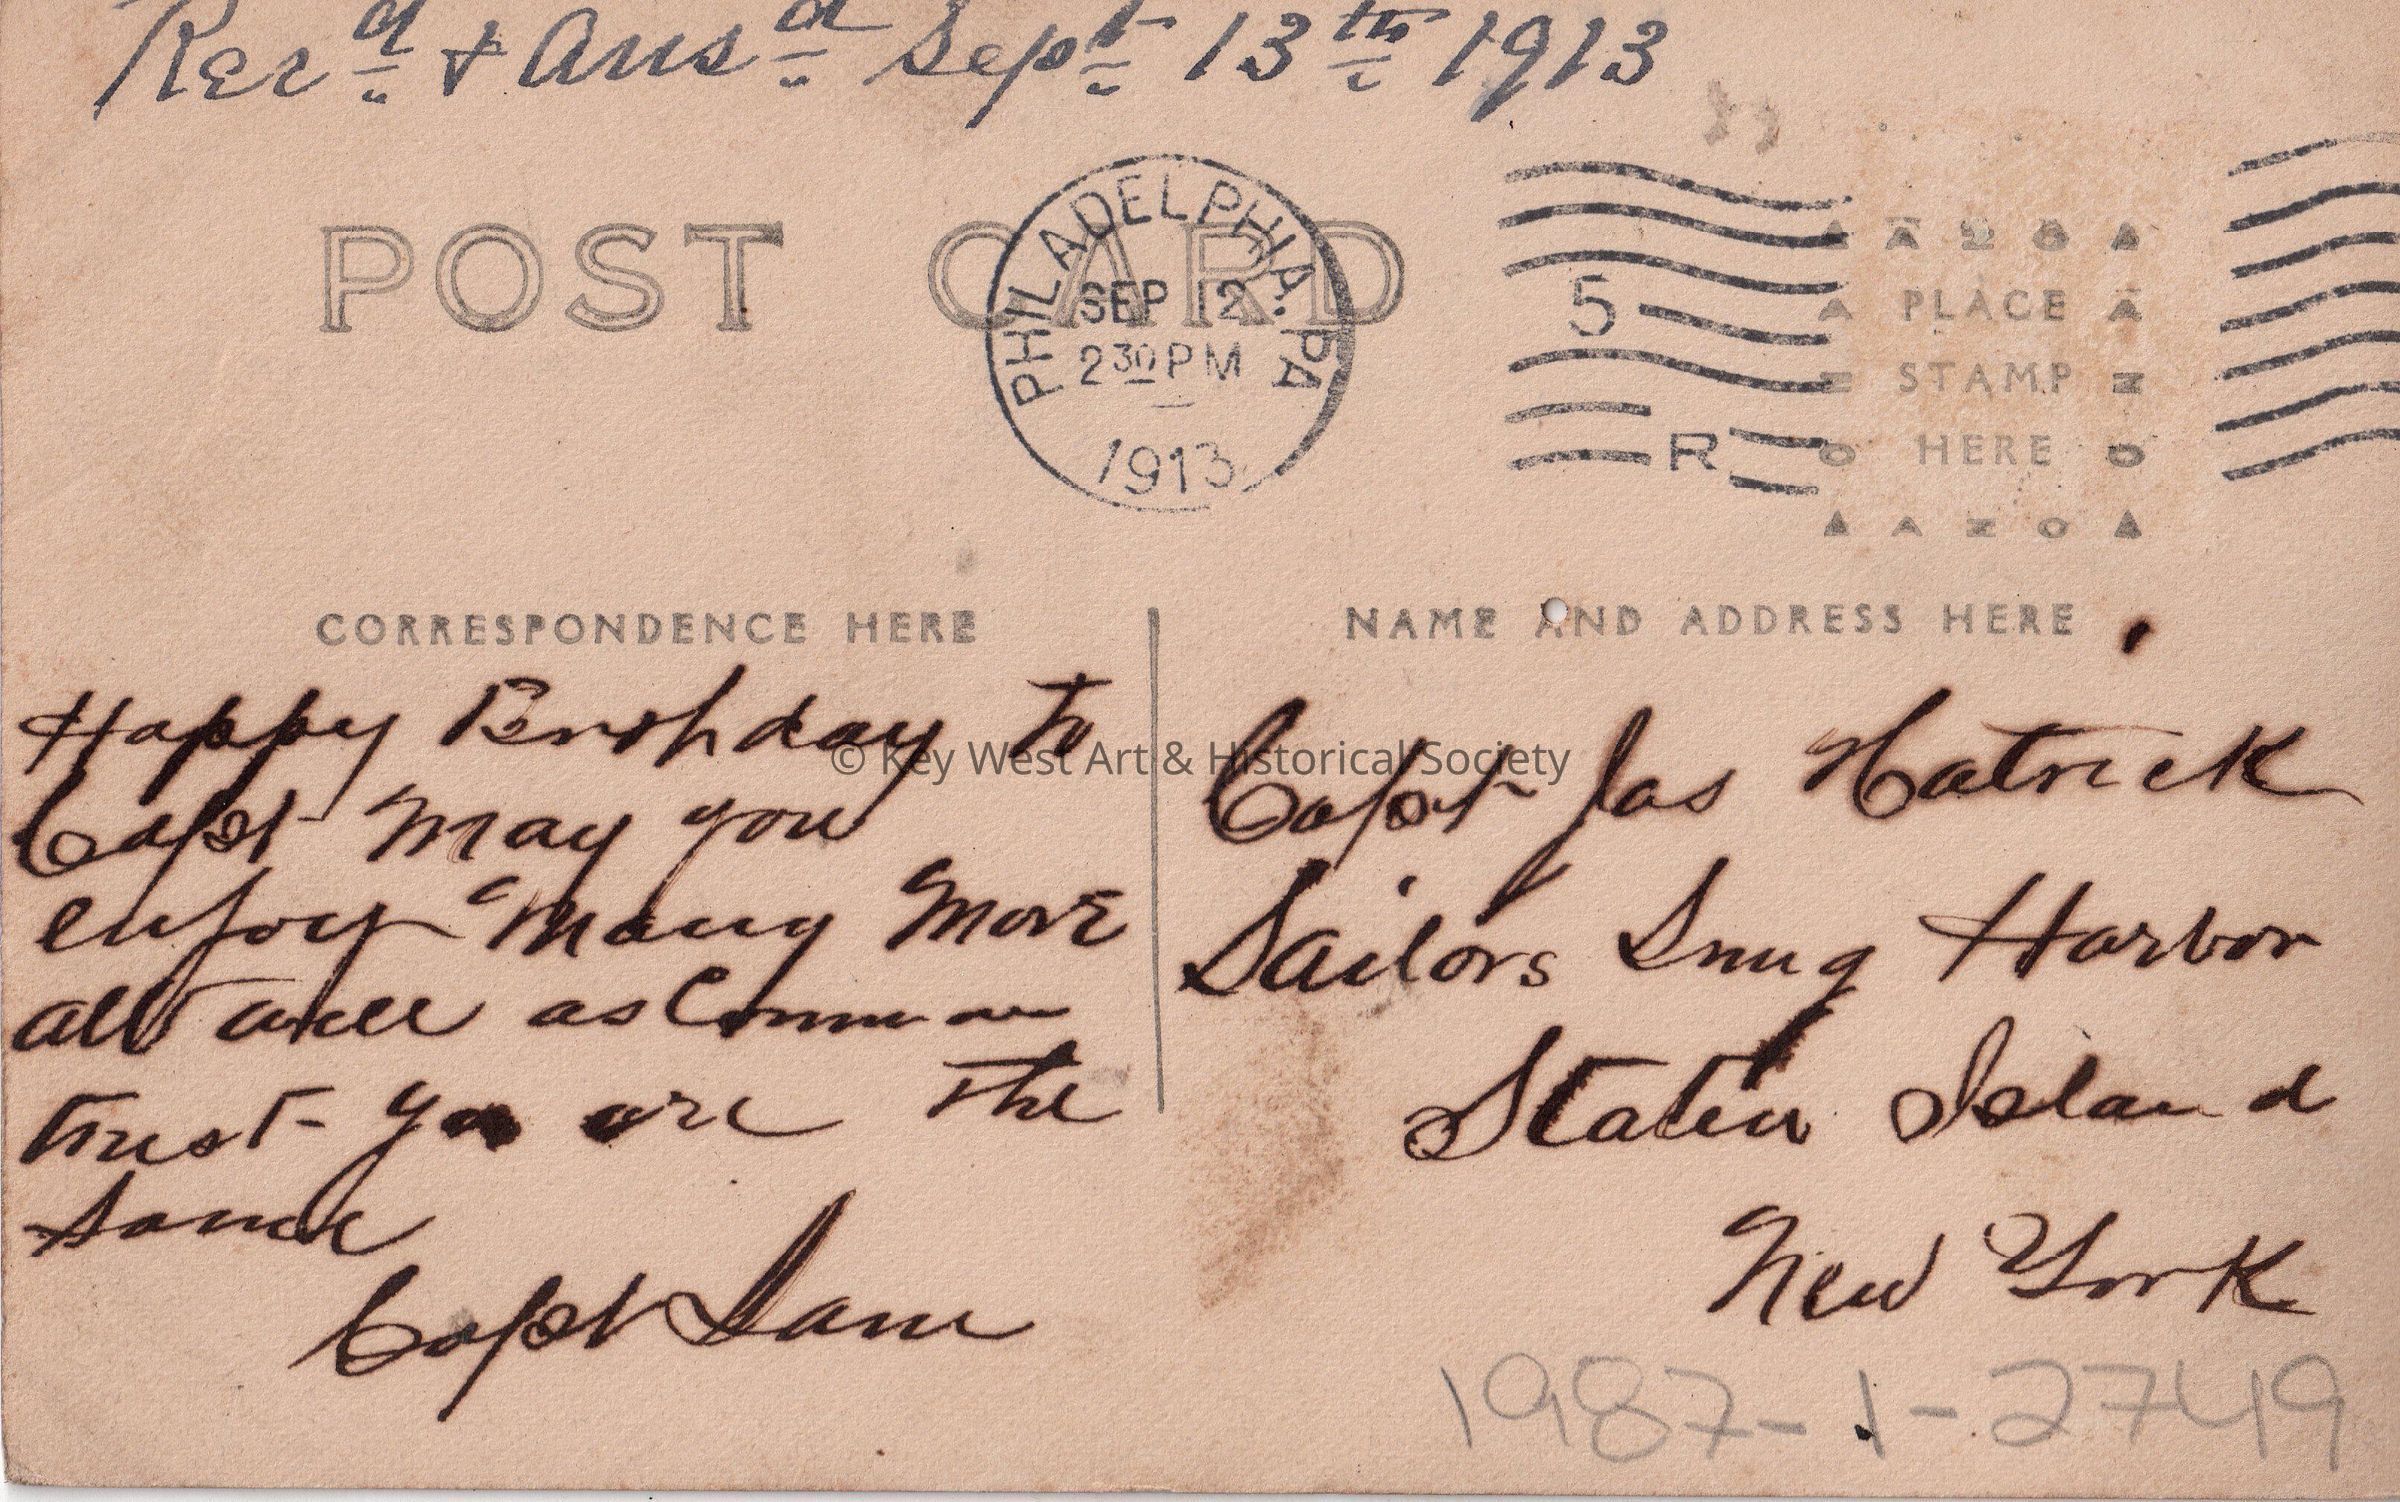 Recd & Ansd Sept 13th 1913
POST CARD
PHILADELPHIA. PA
SEP 12
2 30 PM
1913
5
R
AZO
PLACE
STAMP
HERE
AZO
CORRESPONDENCE HERE
NAME AND ADDRESS HERE
Happy Birthday to
Capt May you
enjoy many more
all well as Common
trust you are the
same
Capt Sam
Capt Jas Hatrick
Sailors Snug Harbor
Staten Island
New York
© Key West Art & Historical Society
1987-1-2749